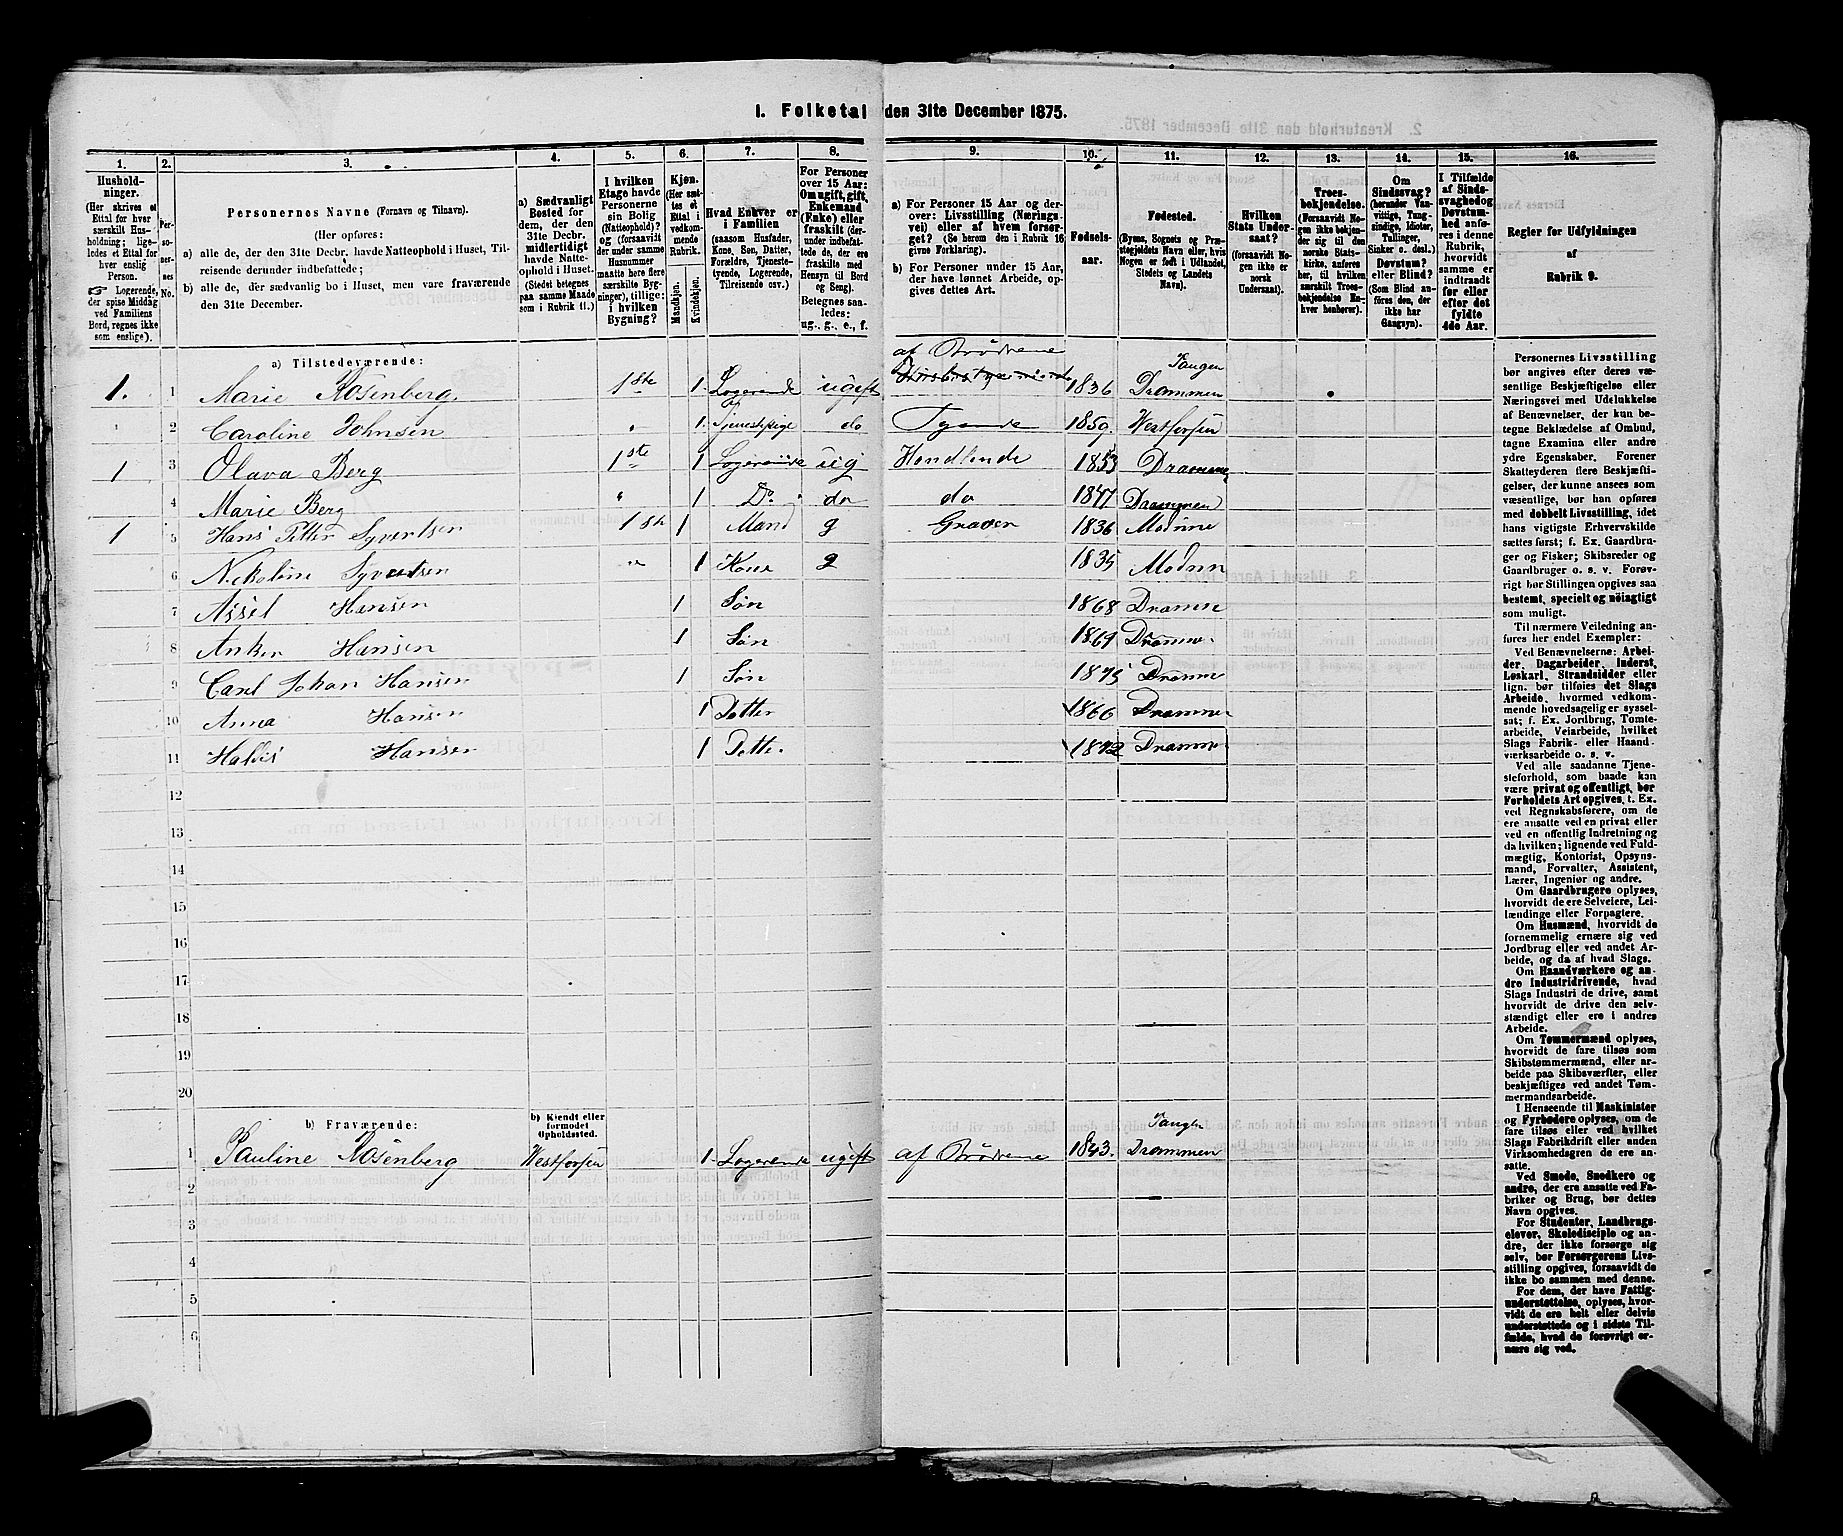 1. Folketal den 31te December 1875.
1. 2. 3. 4. 5. 6. 7. 8. 9. 10. 11. 12. 13. 14. 15. 16.
Hushold-
ninger.
(Her skrives et
Ettal for hver
særskilt Hus-
holdning; lige-
ledes et Ettal for
hver enslig
Person.
☞ Logerende,
der spise Middag
ved Familiens
Bord, regnes ikke
som enslige).
Per-
so-
ner-
nes
No.
Personernes Navne (Fornavn og Tilnavn).
(Her opføres:
a) alle de, der den 31te Decbr. havde Natteophold i Huset, Til-
reisende derunder indbefattede;
b) alle de, der sædvanlig bo i Huset, men vare fraværende
den 31te December.
a) Sædvanligt
Bosted for
dem, der den
31te Decbr.
midlertidigt
havde Natte-
ophold i Huset.
(Stedet betegnes
paa samme Maade
som i Rubrik 11.)
I hvilken
Etage havde
Personerne
sin Bolig
(Natteophold)?
og (forsaavidt
der under samme
Husnummer
maatte høre flere
særskilte Byg-
ninger), tillige:
i hvilken
Bygning?
Kjøn.
(Her sæt-
tes et
Ettal i
vedkom-
mende
Rubrik.
Mandkjøn.
Kvindekjøn.
Hvad Enhver er
i Familien
(saasom Husfader,
Kone, Søn, Datter,
Forældre, Tjeneste-
tyende, Logerende,
Tilreisende osv.)
For Personer
over 15 Aar:
Om ugift, gift,
Enkemand
(Enke) eller
fraskilt (der-
under indbefat-
tede de, der ere
fraskilte med
Hensyn til Bord
og Seng).
Betegnes saa-
ledes:
ug., g., e., f.
a) For Personer 15 Aar og der-
over: Livsstilling (Nærings-
vei) eller af hvem forsør-
get? (Se herom den i Rubrik 16
givne Forklaring).
b) For Personer under 15 Aar,
der have lønnet Arbeide, op-
gives dettes Art.
Fødsels-
aar.
Fødested.
(Byens, Sognets og Præ-
stegjeldets Navn eller, hvis
Nogen er født i Udlandet,
Stedets og Landets
Navn).
Hvilken
Stats Under-
saat?
(forsaavidt No-
gen ikke er
norsk
Undersaat).
Troes-
bekjendelse.
(Forsaavidt No-
gen ikke bekjen-
der sig til den
norske Stats-
kirke, anføres
her, til hvilken
særskilt Troes-
bekjendelse En-
hver henhører).
Om
Sindssvag?
(herunder Van-
vittige, Tung-
sindige, Idioter,
Tullinger,
Sinker o. desl.).
Døvstum?
eller Blind?
(Som Blind an-
føres den, der
ikke har
Gangsyn).
I Tilfælde
af Sinds-
svaghed og
Døvstum-
hed anfø-
res i denne
Rubrik,
hvorvidt
samme er
indtraadt
før eller
efter det
fyldte
4de Aar.
Regler for Udfyldningen
af
Rubrik 9.
a) Tilstedeværende:
af Brødrene
Tangen
1. 1 Marie Rosenberg. 1ste 1. Logerende ugift 1836 Drammen
2 Caroline Johnsen " 1. Tjenestepige do Tyende 1859. Westfossen
1 3 Olava Berg 1ste 1 Logerende ug Handlende 1853 Drammen
4 Marie Berg " 1 Do do do 1847 Drammen
1 5 Hans Petter Syvertsen 1ste 1 Mand g Graver 1836 Modum
6 Nickoline Syvertsen " 1 Kone g 1835 Modum
7 Axsel Hansen 1 Søn 1868 Dramen
8 Anker Hansen 1 Søn 1869 Dramen
9 Carl Johan Hansen 1 Søn 1875 Dramen
10 Anna Hansen 1 Dotter 1866 Drammen
11 Hansen 1 Dotter 1872 Drammen
12
13
14
15
16
17
18
19
20
b) Fraværende:
b) Kjendt eller
formodet
Opholdssted.
Tangen
1 Pauline Rosenberg Westfossen 1. Logerende ugift af Brødrene 1843. Drammen
2
3
4
5
6
Personernes Livsstilling
bør angives efter deres væ-
sentlige Beskjæftigelse eller
Næringsvei med Udelukkelse
af Benævnelser, der kun be-
tegne Beklædelse af Ombud,
tagne Examina eller andre
ydre Egenskaber. Forener
Skatteyderen flere Beskjæfti-
gelser, der kunne ansees som
væsentlige, bør han opføres
med dobbelt Livsstilling, idet
hans vigtigste Erhvervskilde
sættes først; f. Ex. Gaardbru-
ger og Fisker; Skibsreder og
Gaardbruger o. s. v. Forøv-
rigt bør Stillingen opgives saa
bestemt, specielt og nöiagtigt
som muligt.
Til nærmere Veiledning an-
føres her endel Exempler:
Ved Benævnelserne: Arbei-
der, Dagarbeider, Inderst,
Løskarl, Strandsidder eller
lign. bør tilføies det Slags
Arbeide, hvormed vedkom-
mende hovedsagelig er syssel-
sat; f. Ex. Jordbrug, Tomte-
arbeide, Veiarbeide, hvilket
Slags Fabrik- eller Haand-
værksarbeide o. s. v.
Ved alle saadanne Tjene-
steforhold, som baade kan
være privat og offentligt, bør
Forholdets Art opgives, t. Ex.
ved Regnskabsførere, om de
ere ansatte ved en privat eller
ved en offentlig Indretning og
da hvilken; lignende ved Fuld-
mægtig, Kontorist, Opsyns-
mand, Forvalter, Assistent,
Lærer, Ingeniør og andre.
Om Gaardbrugere oplyses,
hvorvidt de ere Selveiere, Lei-
lændinge eller Forpagtere.
Om Husmænd, hvorvidt de
fornemmelig ernære sig ved
Jordbrug eller ved andet Ar-
beide, og da af hvad Slags.
Om Haandværkere og an-
dre Industridrivende, hvad
Slags Industri de drive, samt
hvorvidt de drive den selv-
stændigt eller ere i andres
Arbeide.
Om Tømmermænd oplyses,
hvorvidt de fare tilsøs som
Skibstømmermænd, eller ar-
beide paa Skibsværfter, eller
beskjæftiges ved andet Tøm-
mermandsarbeide.
I Henseende til Maskinister
og Fyrbødere oplyses, om de
fare tilsøs eller ved hvilket
Slags Fabrikdrift eller anden
Virksomhedsgren de ere an-
satte.
Ved Smede, Snedkere og
andre, der ere ansatte ved Fa-
briker og Brug, bør dettes
Navn opgives.
For Studenter, Landbrugs-
elever, Skoledisciple og an-
dre, der ikke forsørge sig
selv, bør Forsørgerens Livs-
stilling opgives, forsaavidt de
ikke bo sammen med denne.
For dem, der have Fattig-
understøttelse, oplyses, hvor-
vidt de ere helt eller delvis
understøttede og i sidste Til-
fælde, hvad de forøvrigt er-
nære sig ved.